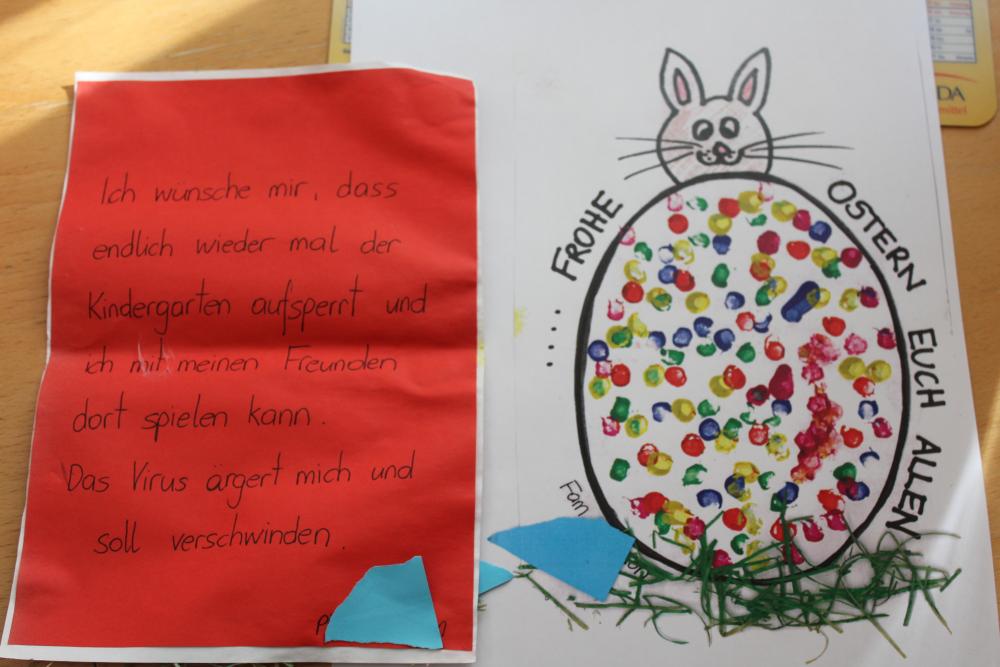 Ich wünsche mir, dass
endlich wieder mal der
Kindergarten aufsperrt und
ich mit meinen Freunden
dort spielen kann.
Das Virus ärgert mich und
soll verschwinden.
.... FROHE OSTERN EUCH ALLEN
Fam